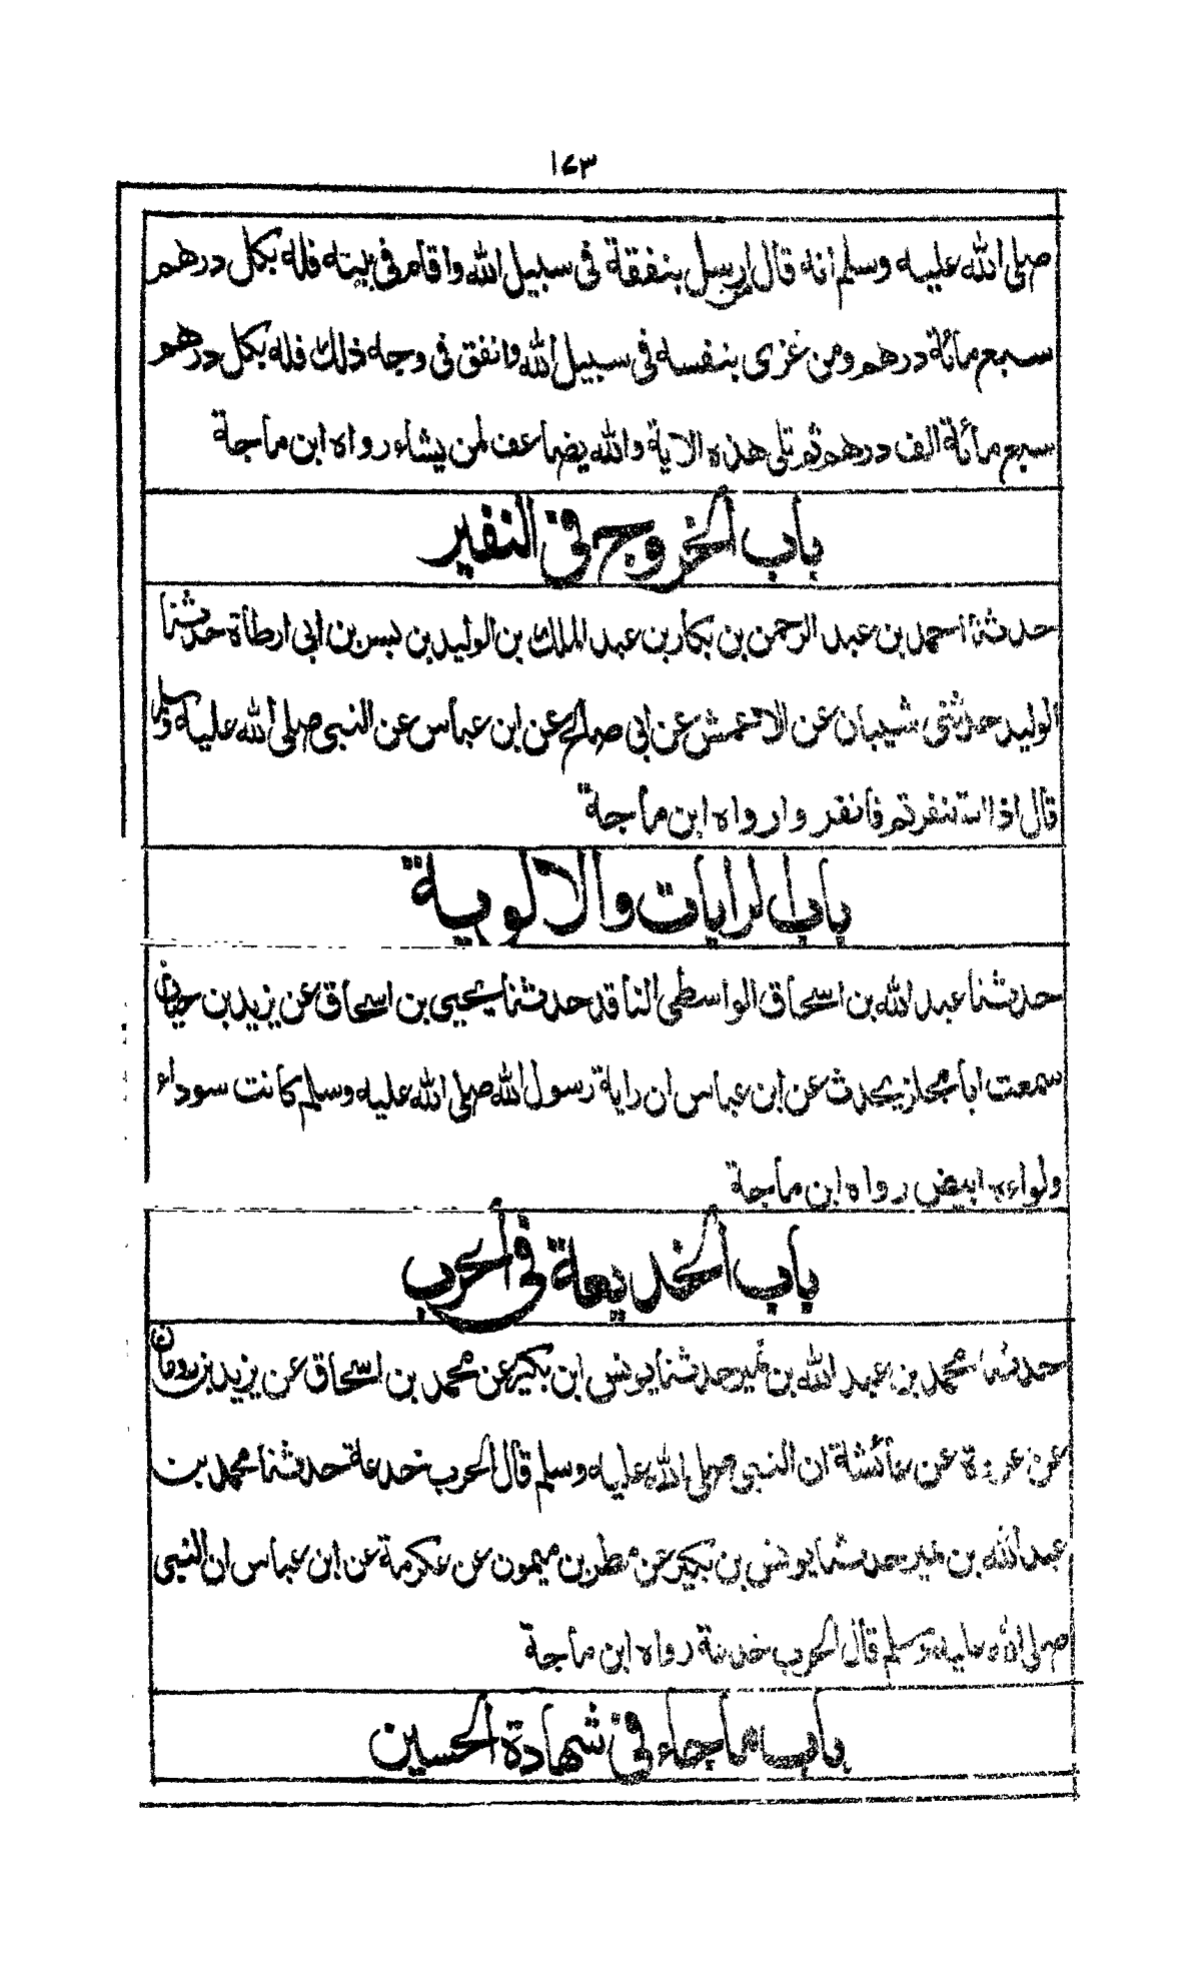 ١٧٣
صلى الله عليه وسلم انه قال من ارسل بنفقة فى سبيل الله واقام فى بيته فله بكل درهم
سبع مائة درهم ومن غزى بنفسه فى سبيل الله وانفق فى وجه ذلك فله بكل درهم
سبع مائة الف درهم ثم تلى هذه الاية والله يضاعف لمن يشاء رواه ابن ماجة
باب الخروج فى النفير
حدثنا احمد بن عبد الرحمن بن بكار بن عبد الملك بن الوليد بن بسر بن ابى ارطاة حدثنا
الوليد حدثنى شيبان عن الاعمش عن ابى صالح عن ابن عباس عن النبى صلى الله عليه وسلم
قال اذا استنفرتم فانفروا رواه ابن ماجة
باب الرايات والالوية
حدثنا عبد الله بن اسحاق الواسطى الناقد حدثنا يحيى بن اسحاق عن يزيد بن حيان
سمعت ابا مجلز يحدث عن ابن عباس ان راية رسول الله صلى الله عليه وسلم كانت سوداء
ولواءه ابيض رواه ابن ماجة
باب الخديعة فى الحرب
حدثنا محمد بن عبد الله بن نمير حدثنا يونس ابن بكير عن محمد بن اسحاق عن يزيد بن رومان
عن عروة عن عائشة ان النبى صلى الله عليه وسلم قال الحرب خدعة حدثنا محمد بن
عبد الله بن نمير حدثنا يونس بن بكير عن مطر بن ميمون عن عكرمة عن ابن عباس ان النبى
صلى الله عليه وسلم قال الحرب خدعة رواه ابن ماجة
باب ماجاء فى شهادة الحسين